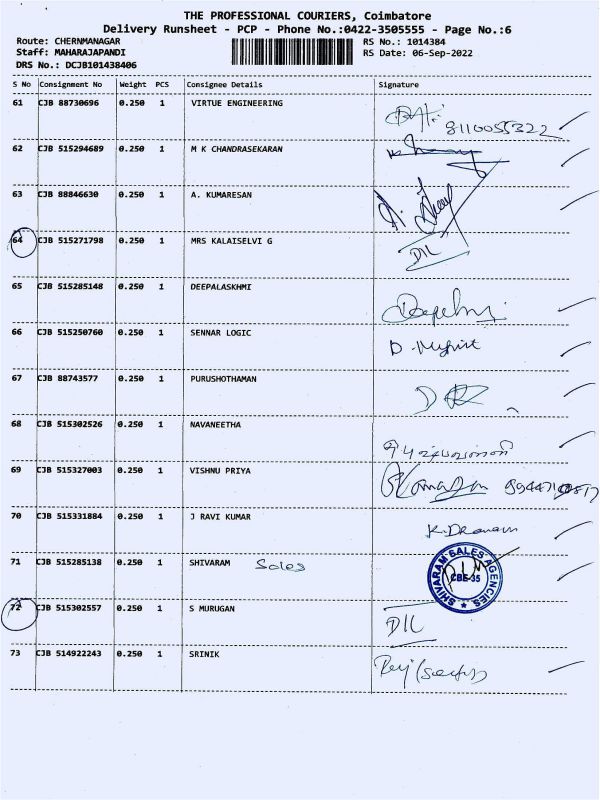 THE PROFESSIONAL COURIERS, Coimbatore
Delivery Runsheet - PCP - Phone No.:0422-3505555 - Page No.:6
Route: CHERNMANAGAR
Staff: MAHARAJAPANDI
DRS No.: DCJB101438406
RS No.: 1014384
RS Date: 06-Sep-2022
S No Consignment No Weight PCS Consignee Details Signature
61 CJB 88730696 0.250 1 VIRTUE ENGINEERING 8110055322
62 CJB 515294689 0.250 1 M K CHANDRASEKARAN
63 CJB 88846630 0.250 1 A. KUMARESAN
64 CJB 515271798 0.250 1 MRS KALAISELVI G DIL
65 CJB 515285148 0.250 1 DEEPALASKHMI
66 CJB 515250760 0.250 1 SENNAR LOGIC
67 CJB 88743577 0.250 1 PURUSHOTHAMAN
68 CJB 515302526 0.250 1 NAVANEETHA
69 CJB 515327003 0.250 1 VISHNU PRIYA
70 CJB 515331884 0.250 1 J RAVI KUMAR
71 CJB 515285138 0.250 1 SHIVARAM Sales SHIVARAM SALES AGENCIES CBE-35
72 CJB 515302557 0.250 1 S MURUGAN DIL
73 CJB 514922243 0.250 1 SRINIK